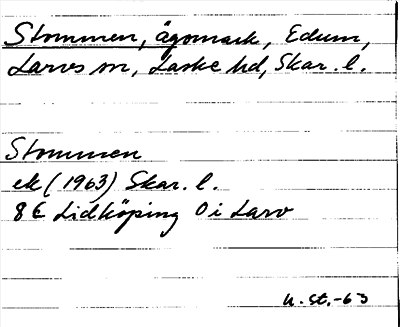 Stommen, ägomark, Edum,
Larvs sn, Laske hd, Skar. l.
Stommen
ek (1963) Skar. l.
8 C Lidköping 0 i Larv
u. st. -63